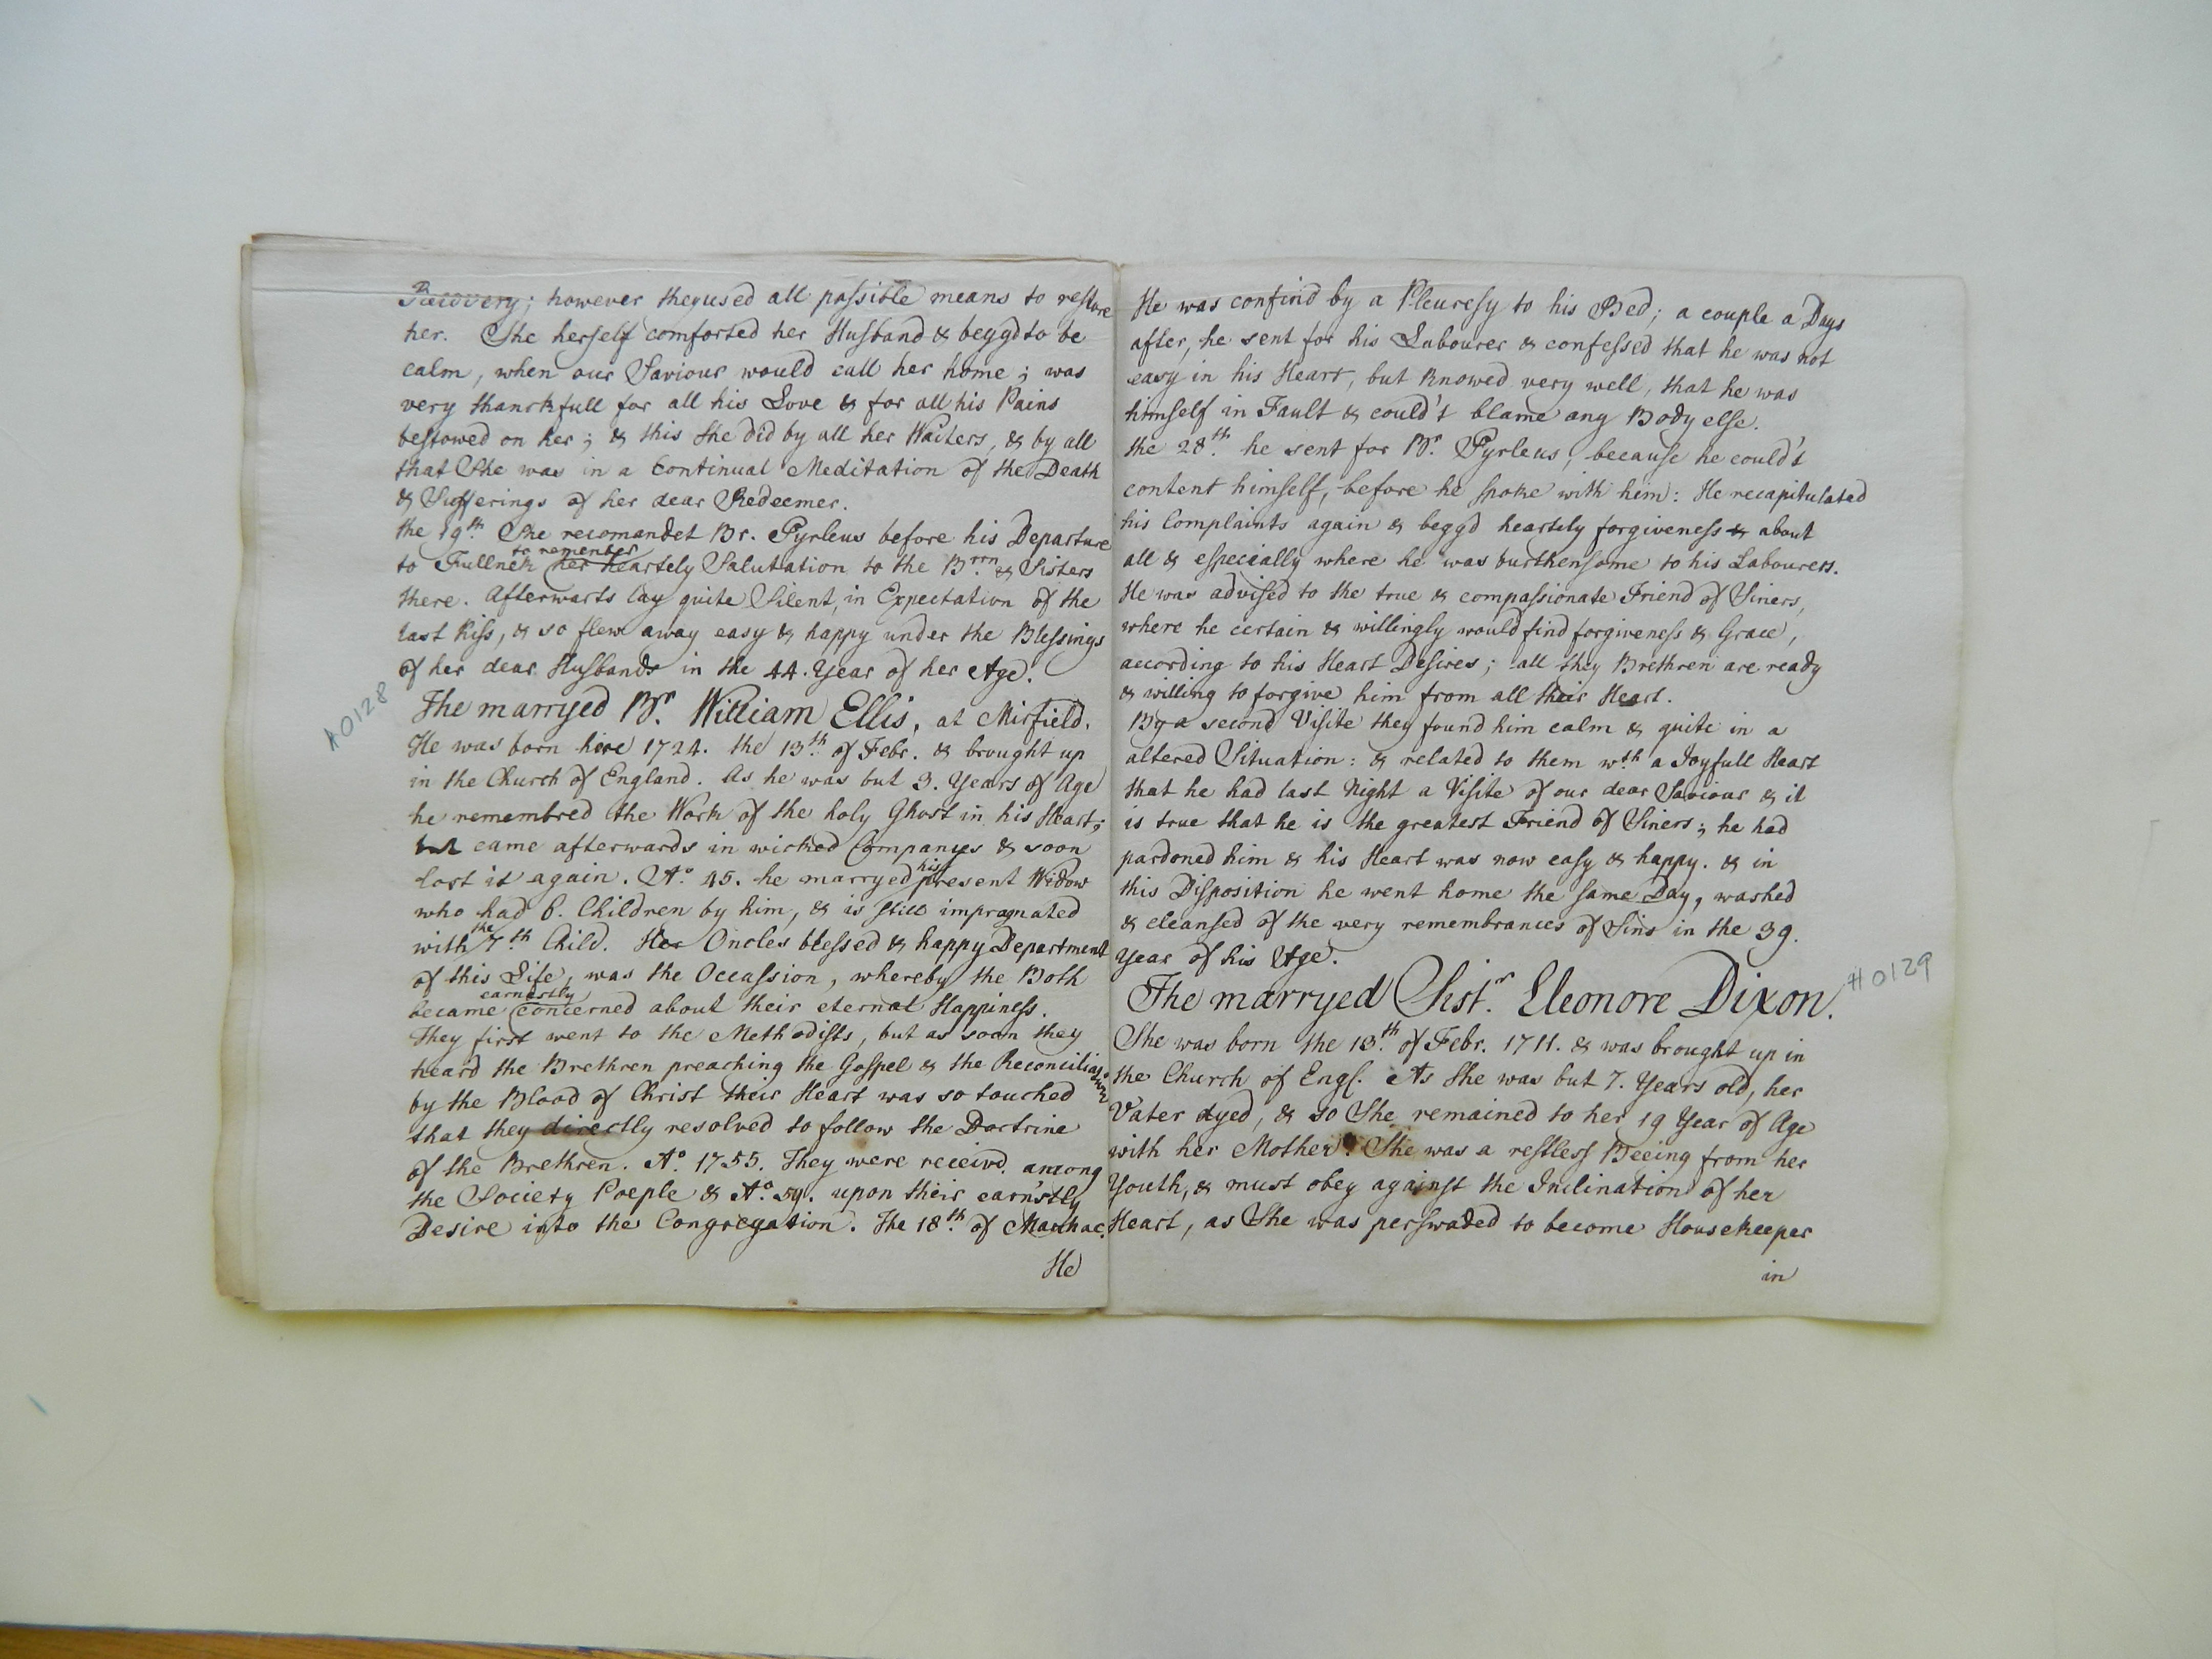 Recovery; however they used all possible means to restore
her. She herself comforted her Husband & beggd to be
calm, when our Saviour would call her home; was
very thanckfull for all his Love & for all his Pains
bestowed on her; & this She did by all her Waiters, & by all
that She was in a Continual Meditation of the Death
& Sufferings of her dear Redeemer.
the 19th. She recomandet Br. Pyrleus before his Departure
to remember
to Fullnek her heartely Salutation to the Brrn & Sisters
there. Afterwarts lay quite Silent, in Expectation of the
last Kiss, & so flew away easy & happy under the Blessings
of her dear Husbands in the 44. Year of her Age.
The marryed Br. William Ellis, at Mirfield.
#0128
He was born here 1724. the 13th. of Febr. & brought up
in the Church of England. As he was but 3. Years of Age
he remembred the Work of the holy Ghost in his Heart;
but came afterwards in wicked Companyes & soon
lost it again. Ao. 45. he marryed his present Widow
who had 6. Children by him, & is still impragnated
with the 7.th Child. Her Oncles blessed & happy Department
of this Life, was the Occassion, whereby the Both
became earnestly concerned about their eternal Happiness.
They first went to the Methodists, but as soon they
heard the Brethren preaching the Gospel & the Reconciliation
by the Blood of Christ their Heart was so touched
that they directly resolved to follow the Doctrine
of the Brethren. Ao. 1755. They were receivd. among
the Society Poeple & Ao. 59. upon their earn'stly
Desire into the Congregation. The 18th. of
He
He was confind by a Pleuresy to his Bed; a couple a Days
after, he sent for his Labourer & confessed that he was not
easy in his Heart, but knowed very well, that he was
himself in Fault & could't blame any Body else.
the 28th. he sent for Br. Pyrleus, because he could't
content himself, before he spoke with him: He recapitulated
his Complaints again & beggd heartely forgiveness & about
all & especially where he was burthensome to his Labourers.
He was advised to the true & compassionate Friend of Siners,
where he certain & willingly would find forgiveness & Grace,
according to his Heart Desires; all they Brethren are ready
& willing to forgive him from all their Heart.
By a second Visite they found him calm & quite in a
altered Situation: & related to them wth a Joyfull Heart
that he had last Night a Visite of our dear Saviour & it
is true that he is the greatest Friend of Siners; he had
pardoned him & his Heart was now easy & happy. & in
this Disposition he went home the same Day, washed
& cleansed of the very remembrances of Sins in the 39.
Year of his Age.
The marryed Sistr. Eleonore Dixon.
#0129
She was born the 13th. of Febr. 1711. & was brought up in
the Church of Engl. As She was but 7. Years old, her
Vater dyed, & so She remained to her 19 Year of Age
with her Mother. She was a restless Beeing from her
Youth, & must obey against the Inclination of her
Heart, as She was perswaded to become Housekeeper
in